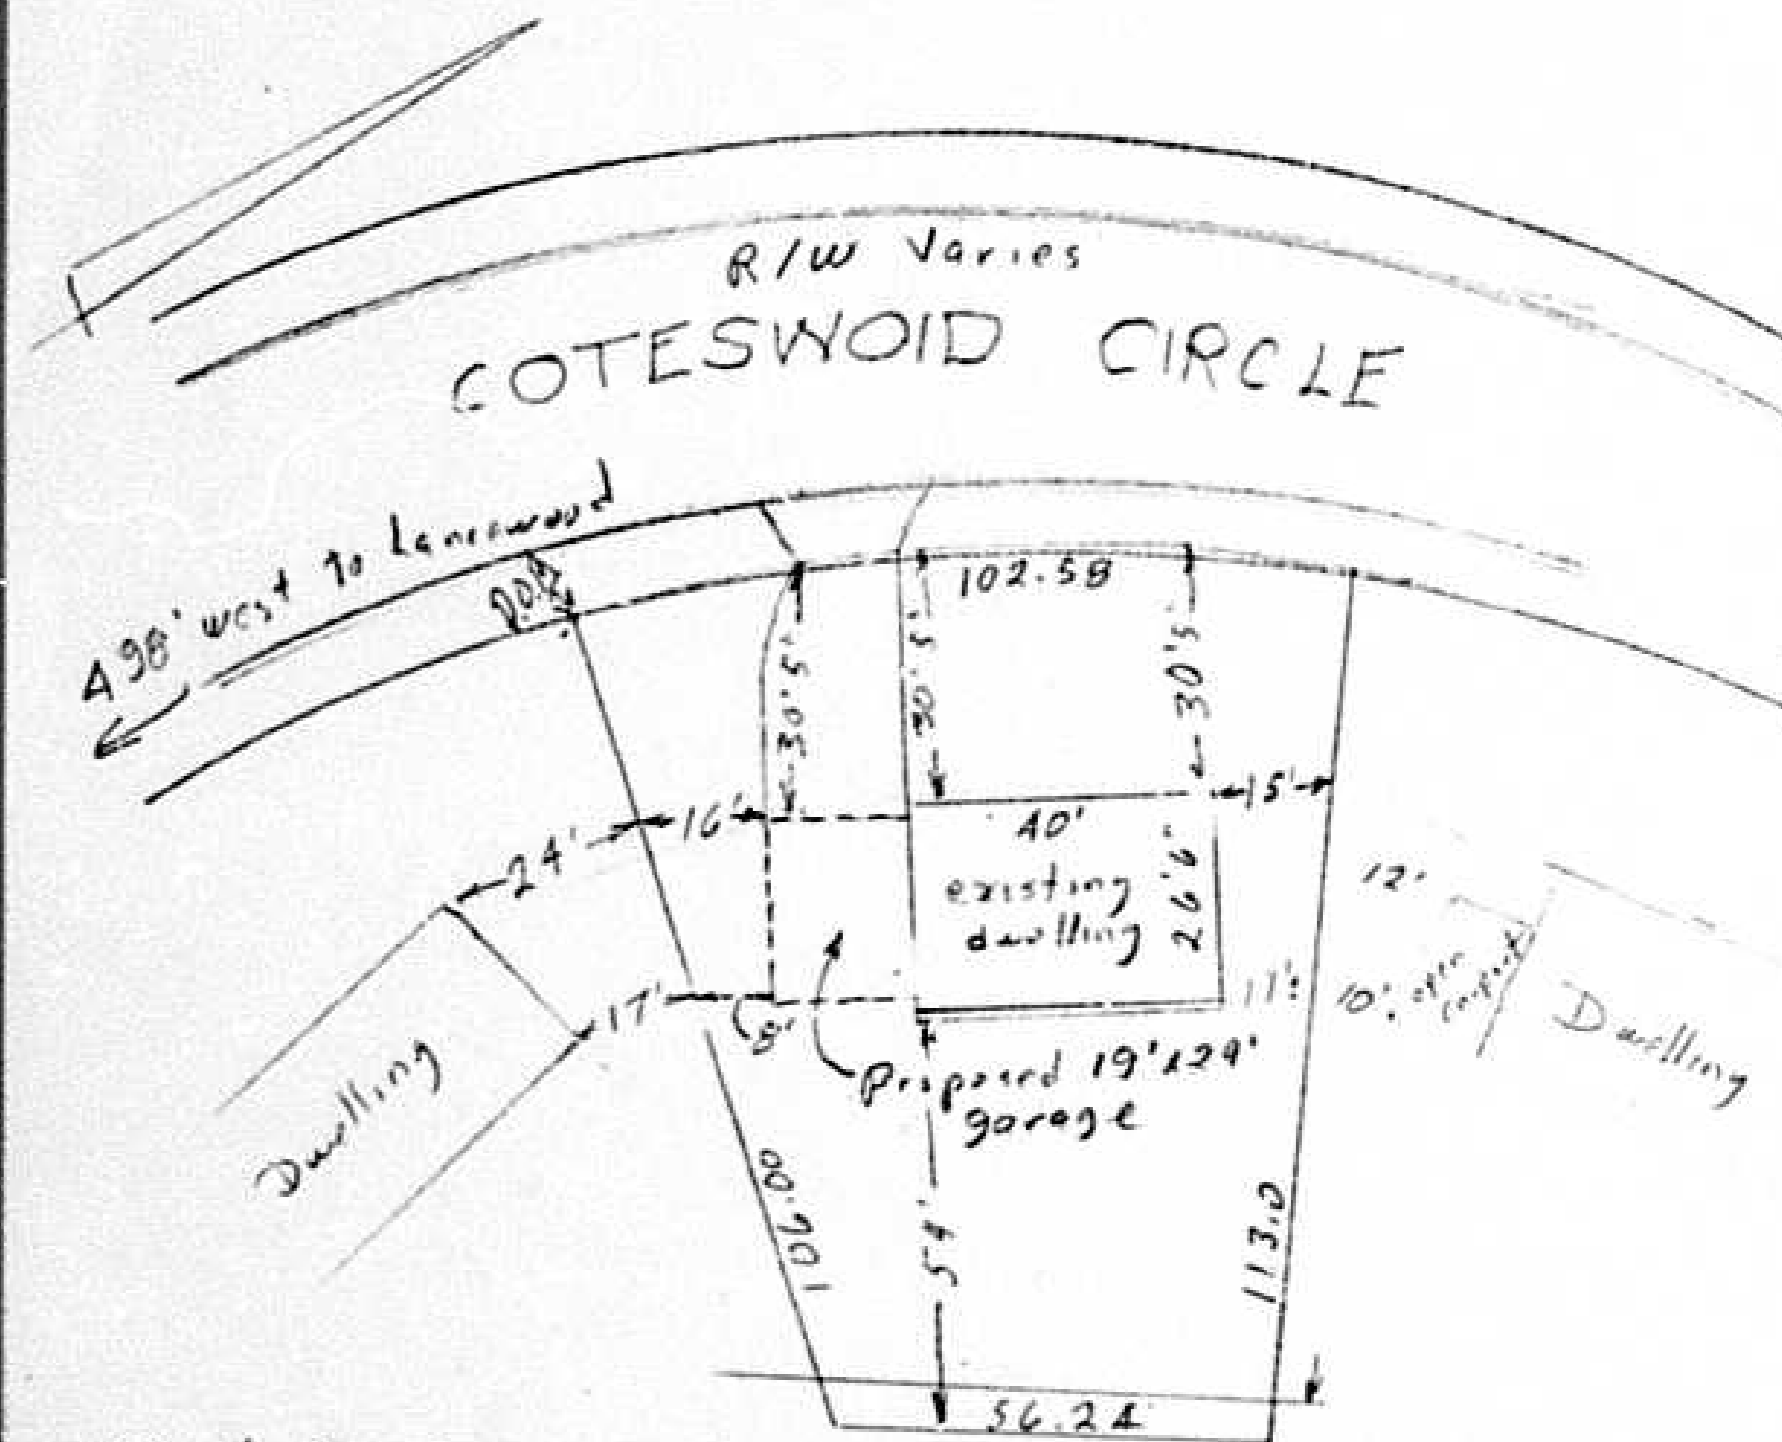 R/W Varies
COTESWOID CIRCLE
498' west to
P.O.B.
102.58
30'5'
30'5'
30'5'
24'
16'
15'
40'
26'6"
existing
dwelling
12'
17'
8'
11'
10'
open
carport
Dwelling
Dwelling
Proposed 19'x24'
garage
106.00
54'
113.0
56.24